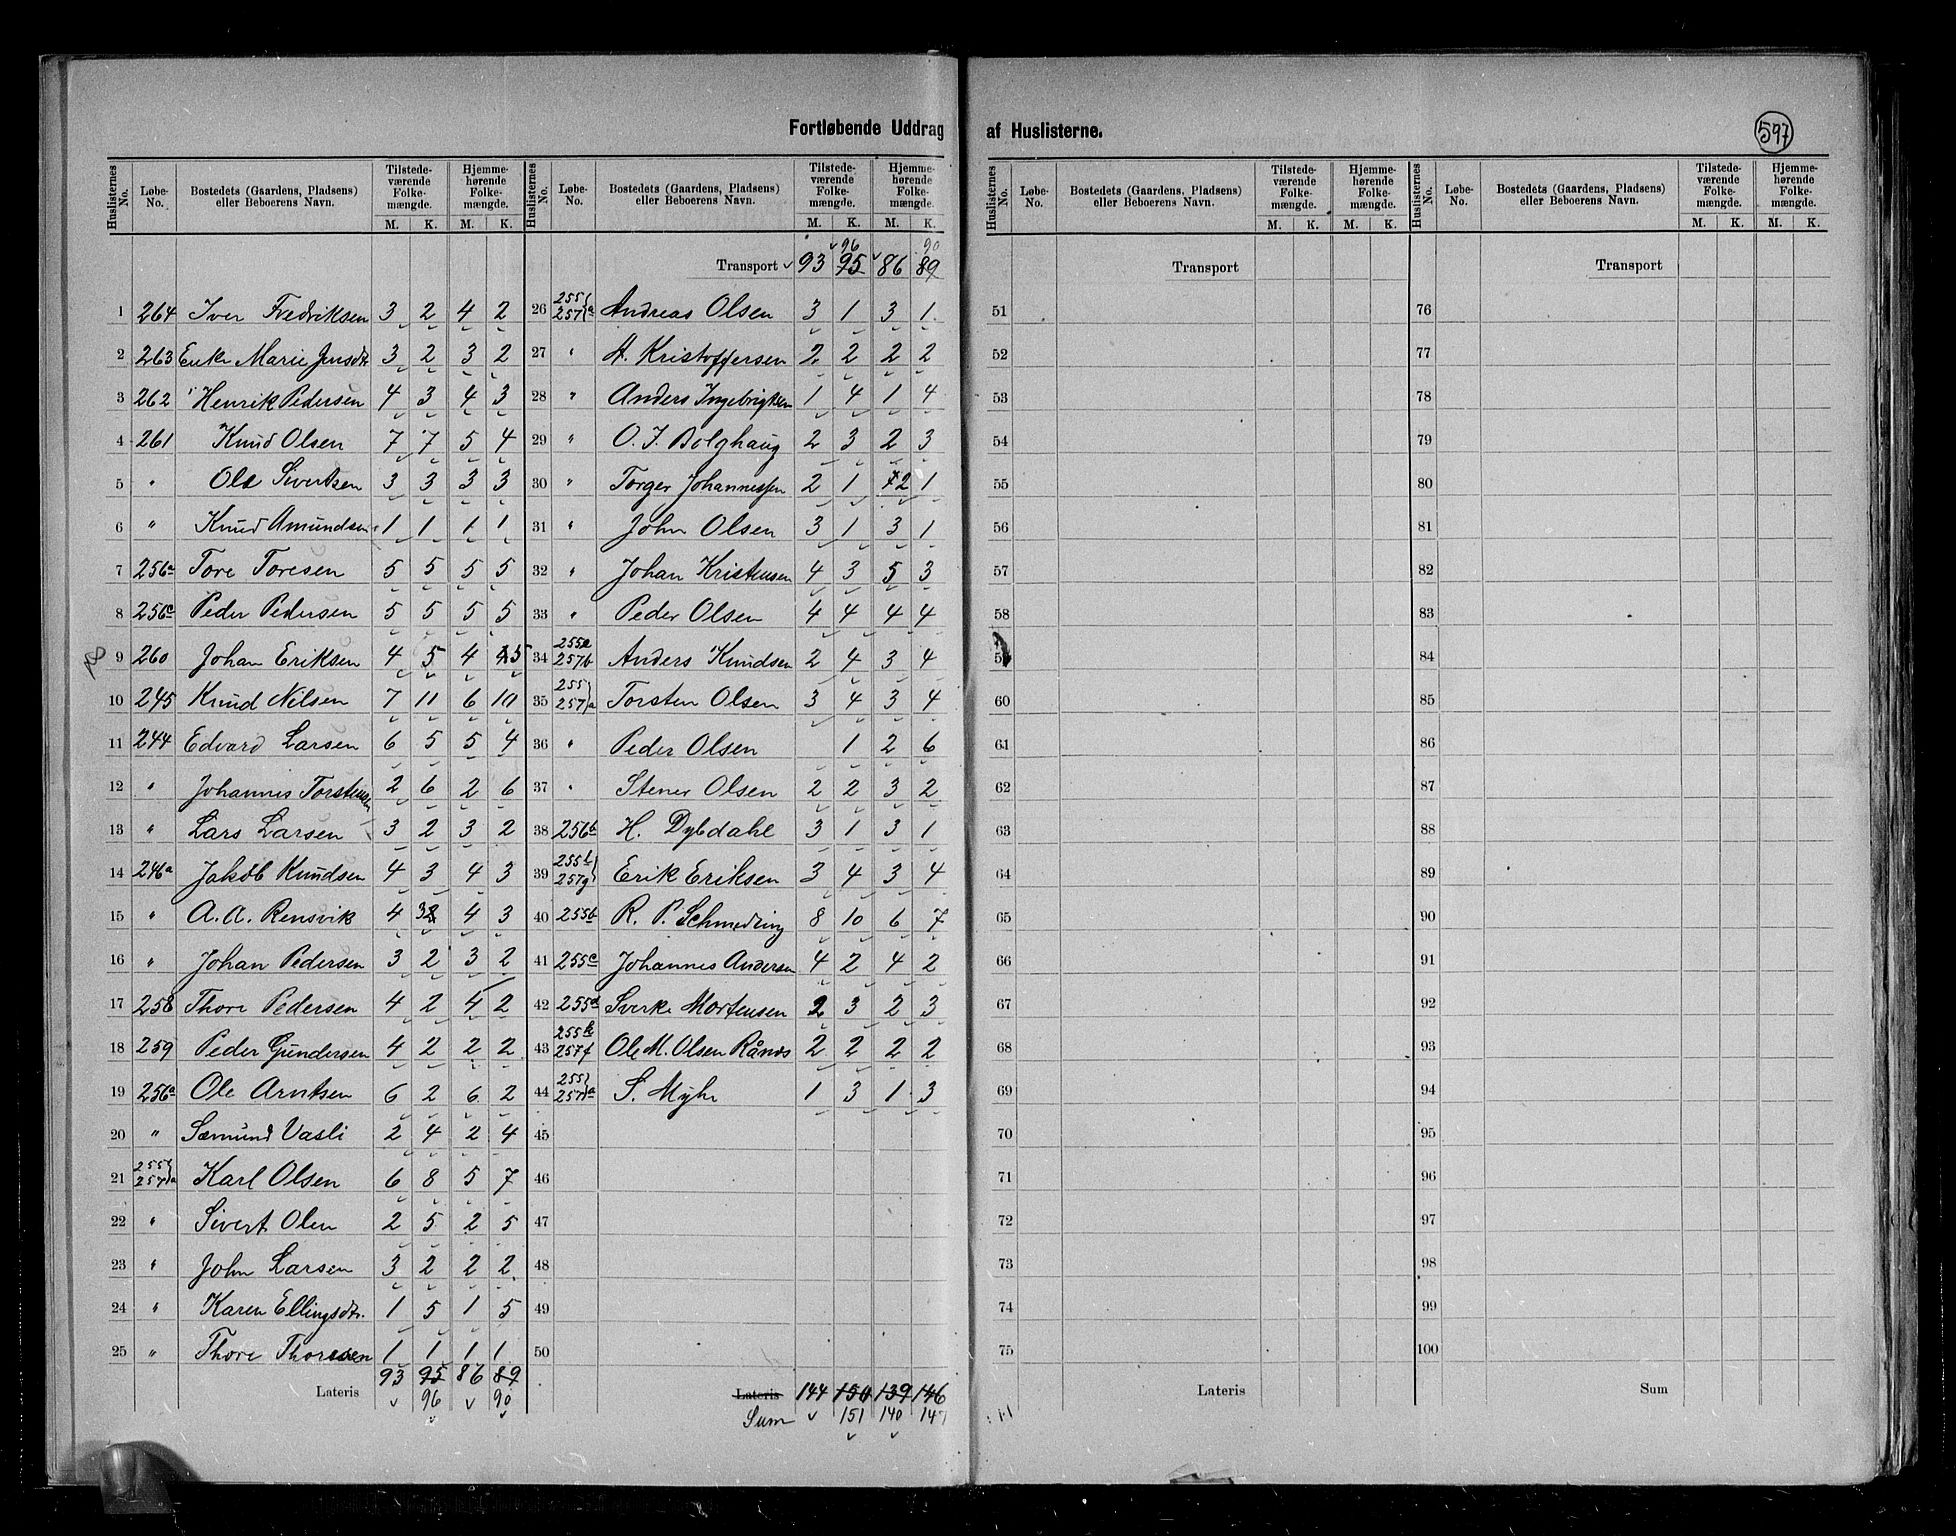 Fortløbende Uddrag af Huslisterne.
597
Huslisternes No. | Løbe-No. | Bostedets (Gaardens, Pladsens) eller Beboerens Navn. | Tilstedeværende Folkemængde. M. K. | Hjemmehørende Folkemængde. M. K.
1 264 Iver Fredriksen 3 2 4 2
2 263 Enke Marie Jensdtr 3 2 3 2
3 262 Henrik Pedersen 4 3 4 3
4 261 Knud Olsen 7 7 5 4
5 " Ole Sivertsen 3 3 3 3
6 " Knud Amundsen 1 1 1 1
7 256a Tore Toresen 5 5 5 5
8 256c Peder Pedersen 5 5 5 5
9 260 Johan Eriksen 4 5 4 5
10 245 Knud Nilsen 7 11 6 10
11 244 Edvard Larsen 6 5 5 4
12 " Johannes Torstensen 2 6 2 6
13 " Lars Larsen 3 2 3 2
14 246a Jakob Knudsen 4 3 4 3
15 " A. A. Rensvik 4 3 4 3
16 " Johan Pedersen 3 2 3 2
17 258 Thore Pedersen 4 2 4 2
18 259 Peder Gundersen 4 2 2 2
19 256a Ole Arntsen 6 2 6 2
20 " Sæmund Vasli 2 4 2 4
21 255 257 a Karl Olsen 6 8 5 7
22 " Sivert Olen 2 5 2 5
23 " John Larsen 3 2 2 2
24 " Karen Ellingsdtr. 1 5 1 5
25 " Thore Thoresen 1 1 1 1
Lateris 93 95 86 89
96 90
Huslisternes No. | Løbe-No. | Bostedets (Gaardens, Pladsens) eller Beboerens Navn. | Tilstedeværende Folkemængde. M. K. | Hjemmehørende Folkemængde. M. K.
96 90
Transport 93 95 86 89
26 255 257 a Andreas Olsen 3 1 3 1
27 " A. Kristoffersen 2 2 2 2
28 " Anders Ingebrigtsen 1 4 1 4
29 " O. J. Bolghaug 2 3 2 3
30 " Torger Johannessen 2 1 2 1
31 " John Olsen 3 1 3 1
32 " Johan Kristensen 4 3 5 3
33 " Peder Olsen 4 4 4 4
34 255e 257b Anders Knudsen 2 4 3 4
35 255 257 a Torsten Olsen 3 4 3 4
36 " Peder Olsen 1 2 6
37 " Stener Olsen 2 2 3 2
38 256b H. Dybdahl 3 1 3 1
39 255l 257g Erik Eriksen 3 4 3 4
40 255b R. P. Schmeding 8 10 6 7
41 255c Johannes Andersen 4 2 4 2
42 255d Sverke Mortensen 2 3 2 3
43 255k 257f Ole M. Olsen Rånes 2 2 2 2
44 255 257 a S. Myhr 1 3 1 3
45
46
47
48
49
50
Lateris 144 150 139 146
Sum 151 140 147
Huslisternes No. | Løbe-No. | Bostedets (Gaardens, Pladsens) eller Beboerens Navn. | Tilstedeværende Folkemængde. M. K. | Hjemmehørende Folkemængde. M. K.
Transport
51
52
53
54
55
56
57
58
59
60
61
62
63
64
65
66
67
68
69
70
71
72
73
74
75
Lateris
Huslisternes No. | Løbe-No. | Bostedets (Gaardens, Pladsens) eller Beboerens Navn. | Tilstedeværende Folkemængde. M. K. | Hjemmehørende Folkemængde. M. K.
Transport
76
77
78
79
80
81
82
83
84
85
86
87
88
89
90
91
92
93
94
95
96
97
98
99
100
Sum